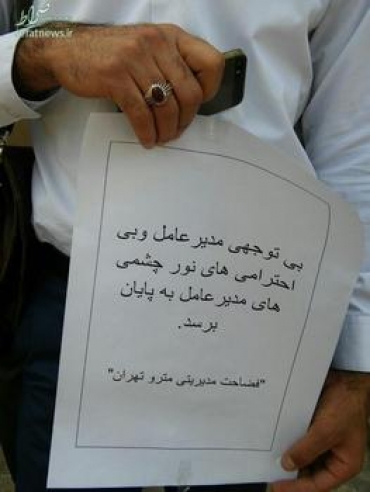 صراط
fatnews.ir
بی توجهی مدیرعامل وبی
احترامی های نور چشمی
های مدیرعامل به پایان
برسد.
"فضاحت مدیریتی مترو تهران"